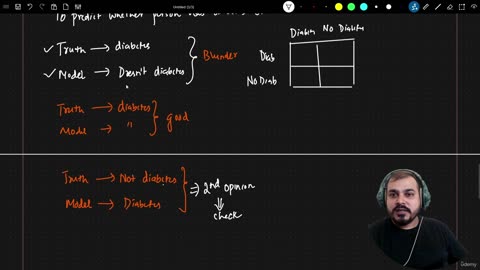 To predict whether person
✓ Truth → diabetes
✓ Model → Doesn't diabetes
Blunder
Diabetes No Diabetes
Diab
No Diab
Truth → diabetes
Model → "
good
Truth → Not diabetes
Model → Diabetes
⇒ 2nd opinion
⇓
check
Udemy